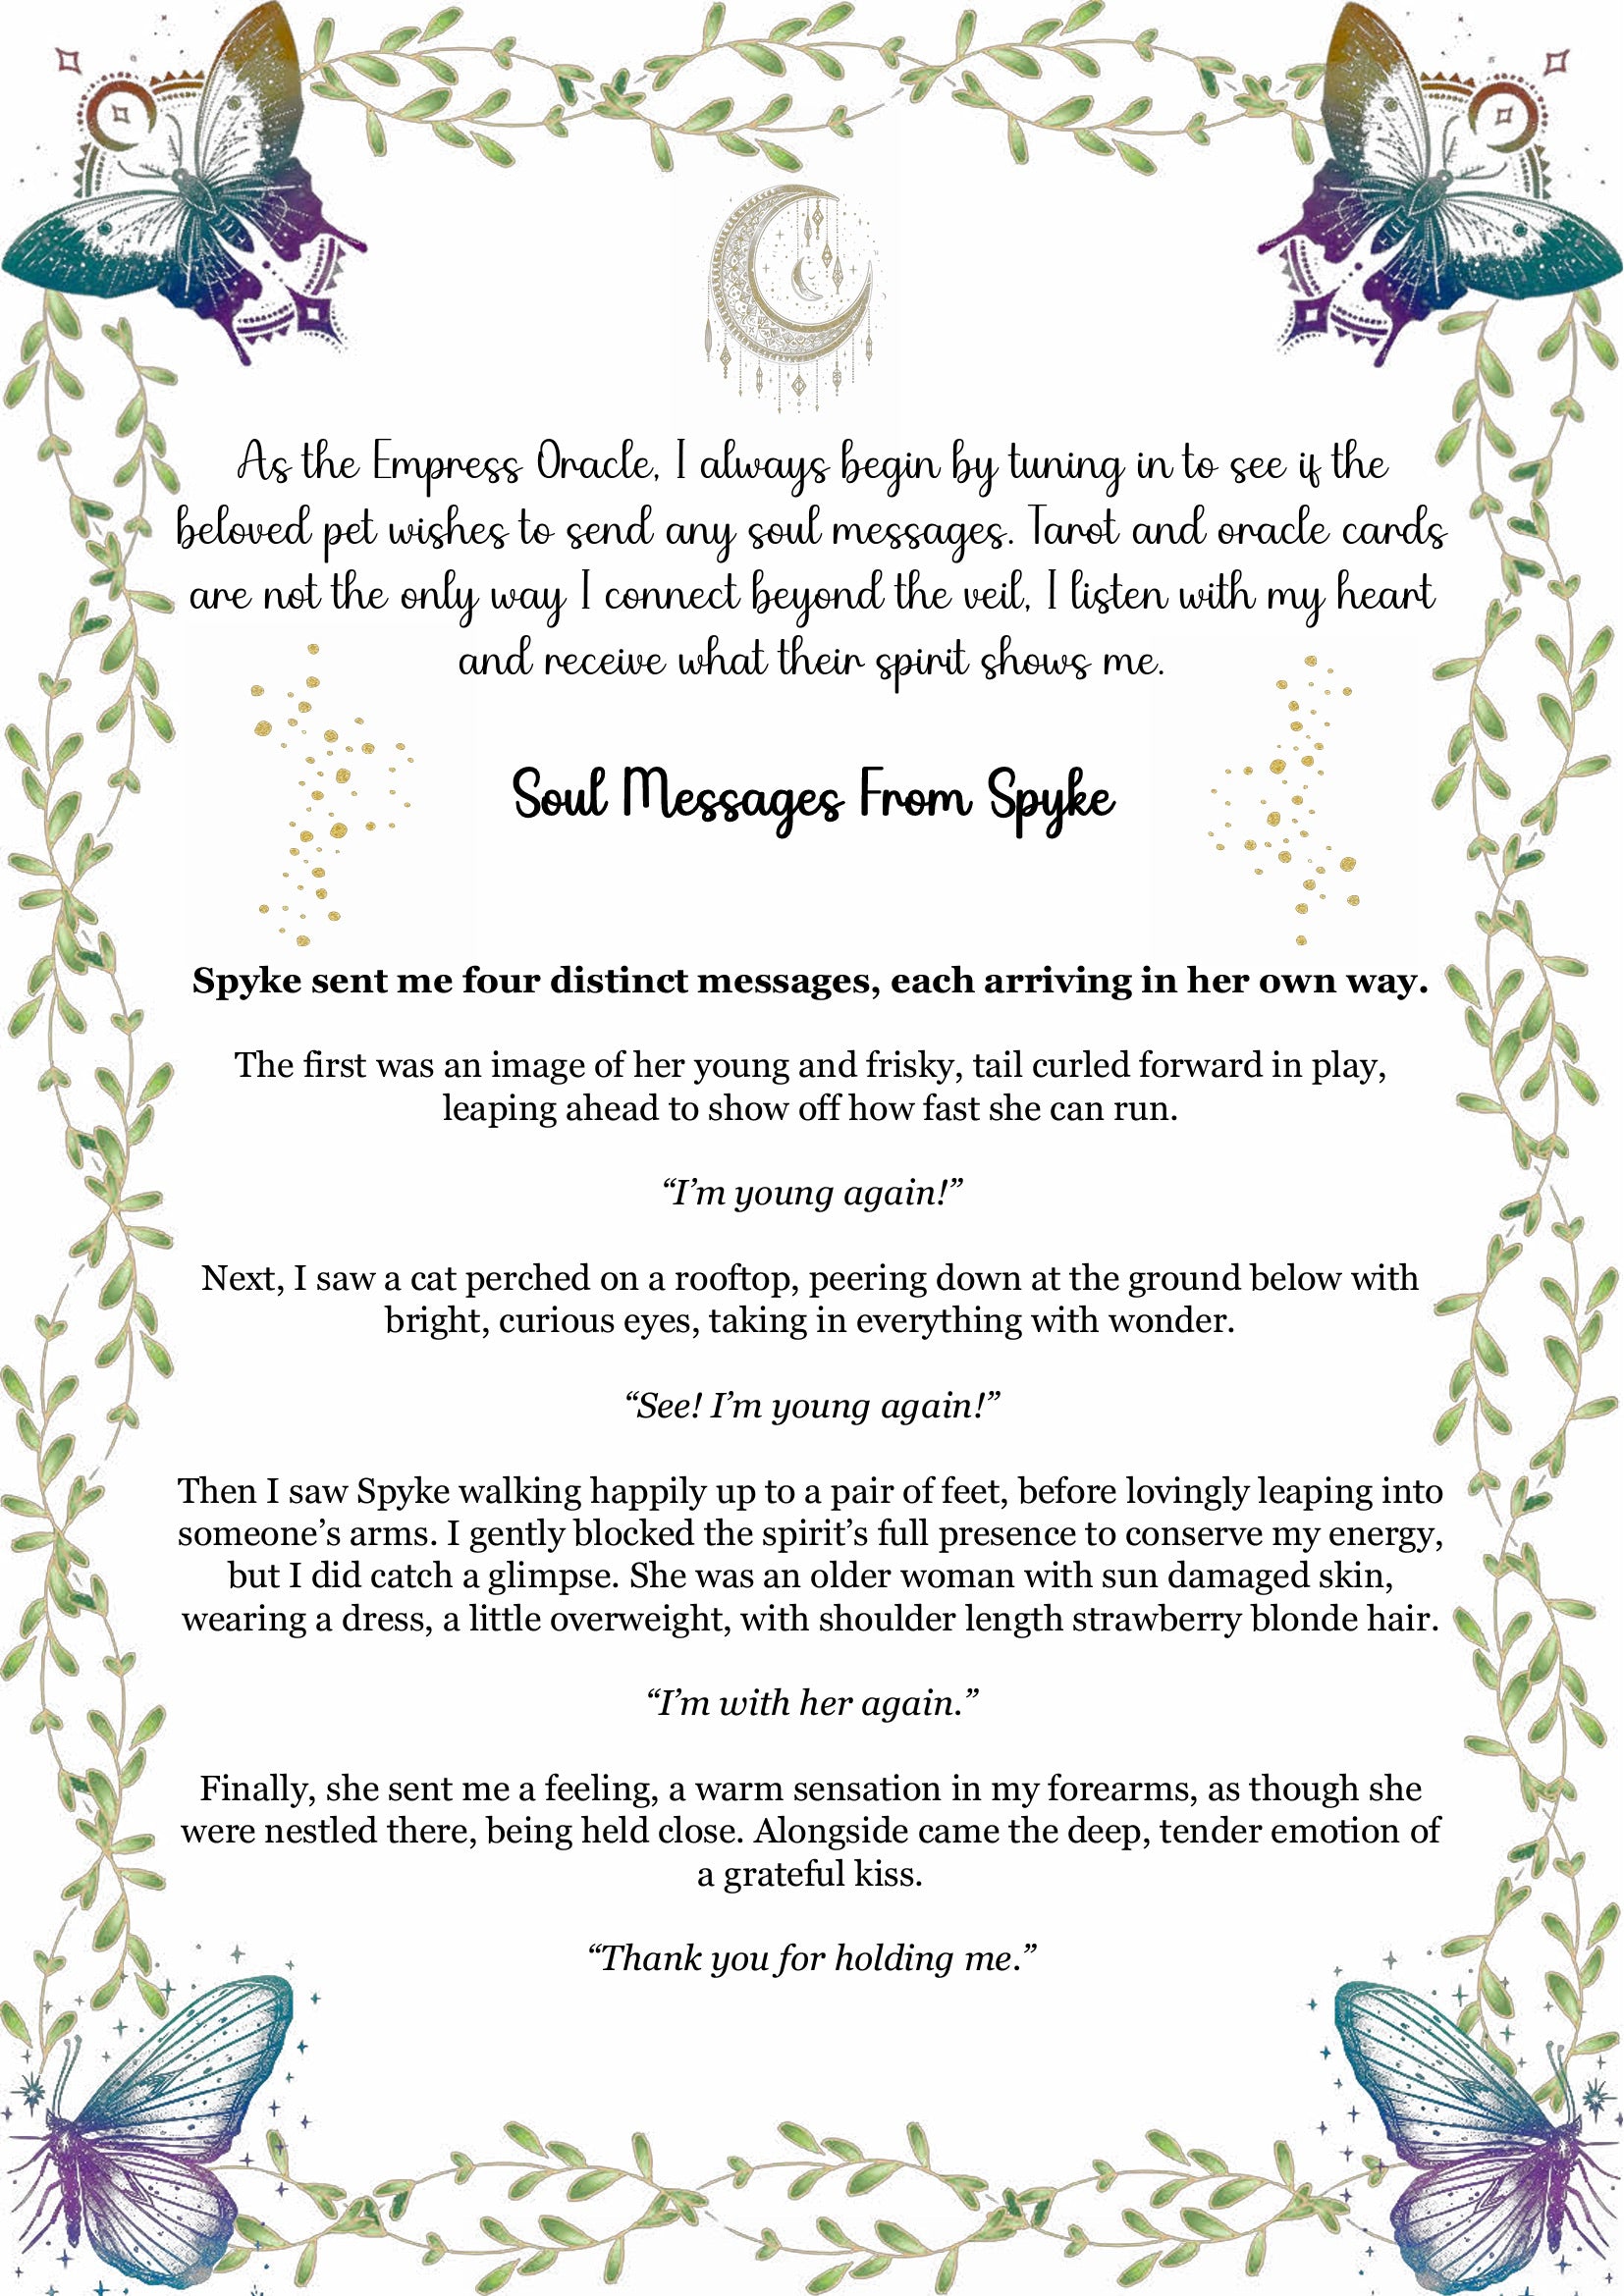 As the Empress Oracle, I always begin by tuning in to see if the
beloved pet wishes to send any soul messages. Tarot and oracle cards
are not the only way I connect beyond the veil, I listen with my heart
and receive what their spirit shows me.
Soul Messages From Spyke
Spyke sent me four distinct messages, each arriving in her own way.
The first was an image of her young and frisky, tail curled forward in play,
leaping ahead to show off how fast she can run.
“I’m young again!”
Next, I saw a cat perched on a rooftop, peering down at the ground below with
bright, curious eyes, taking in everything with wonder.
“See! I’m young again!”
Then I saw Spyke walking happily up to a pair of feet, before lovingly leaping into
someone’s arms. I gently blocked the spirit’s full presence to conserve my energy,
but I did catch a glimpse. She was an older woman with sun damaged skin,
wearing a dress, a little overweight, with shoulder length strawberry blonde hair.
“I’m with her again.”
Finally, she sent me a feeling, a warm sensation in my forearms, as though she
were nestled there, being held close. Alongside came the deep, tender emotion of
a grateful kiss.
“Thank you for holding me.”